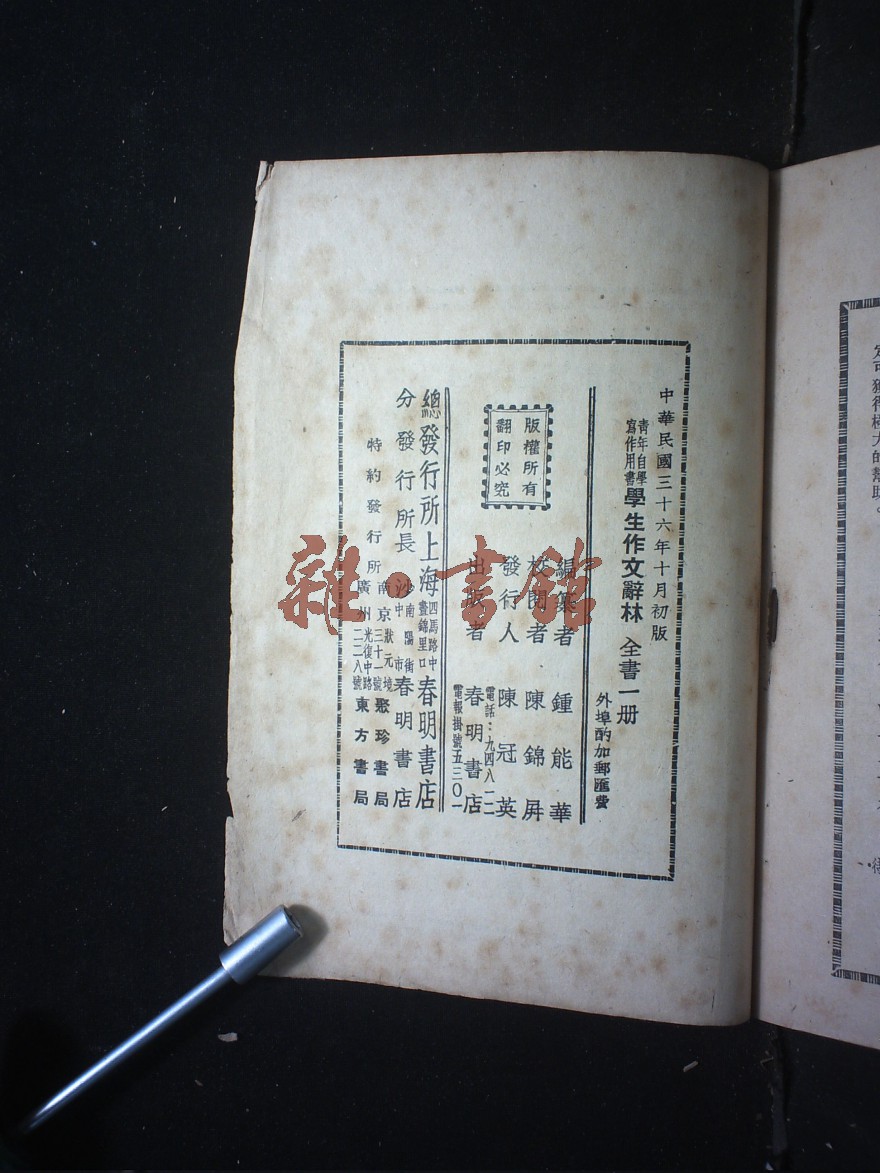 中華民國三十六年十月初版
青年自學
寫作用書
學生作文辭林 全書一册
外埠酌加郵匯費
版權所有
翻印必究
編纂者 鍾能華
校閱者 陳錦屏
發行人 陳冠英
出版者 春明書店
電話：九四八一二
電報掛號五三〇一
總發行所上海
四馬路中
晝錦里口
春明書店
分發行所長沙
南陽街
中市
春明書店
特約發行所
南京
狀元境
三十一號
聚珍書局
廣州
光復中路
二二八號
東方書局
定可獲得極大的幫助。
雜·書館